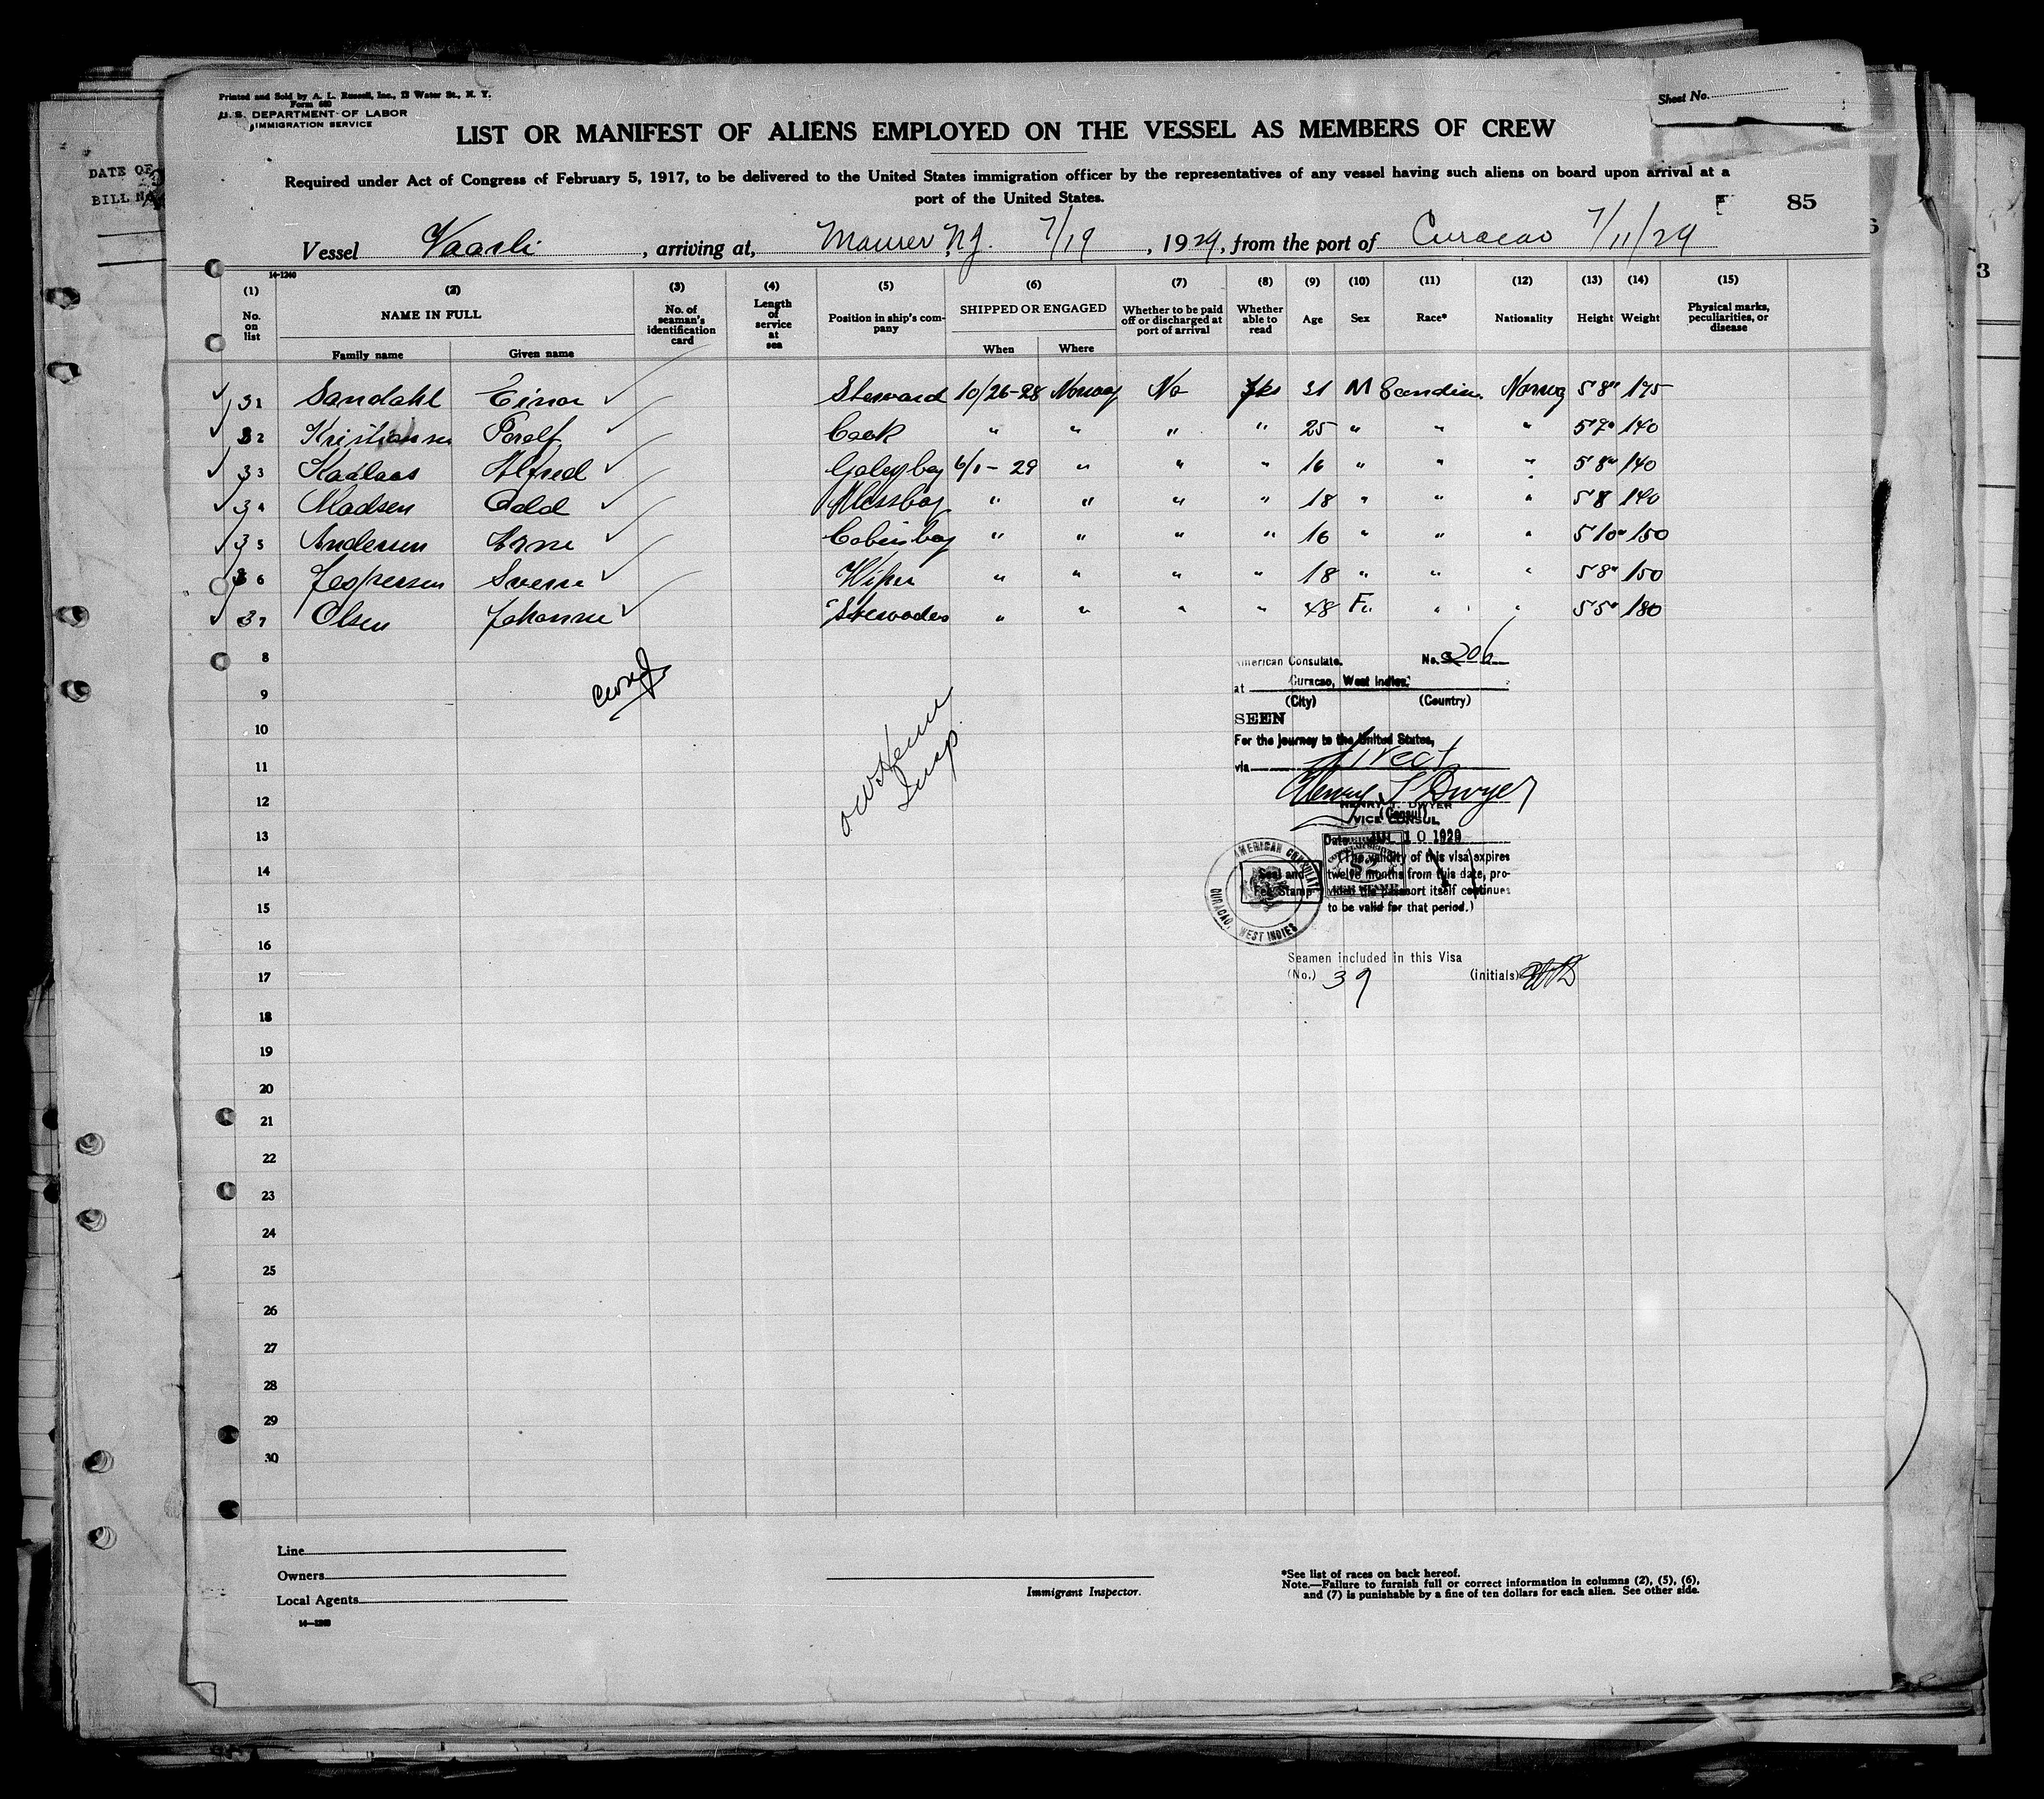 Printed and Sold by A. L. Russell, Inc., 13 Water St., N. Y.
Form 680
U. S. DEPARTMENT OF LABOR
IMMIGRATION SERVICE
Sheet No.
LIST OR MANIFEST OF ALIENS EMPLOYED ON THE VESSEL AS MEMBERS OF CREW
DATE OF
BILL NO
Required under Act of Congress of February 5, 1917, to be delivered to the United States immigration officer by the representatives of any vessel having such aliens on board upon arrival at a
port of the United States.
85
Vessel Vaarli, arriving at, Maurer, N.J. 7/19, 1929, from the port of Curacao 7/11/29
14-1240
(1) (2) (3) (4) (5) (6) (7) (8) (9) (10) (11) (12) (13) (14) (15)
No. on list NAME IN FULL No. of seaman's identification card Length of service at sea Position in ship's company SHIPPED OR ENGAGED Whether to be paid off or discharged at port of arrival Whether able to read Age Sex Race* Nationality Height Weight Physical marks, peculiarities, or disease
Family name Given name When Where
31 Sandahl Einar Steward 10/26-28 Norway No Yes 31 M Scandin. Norwg 5 8" 175
32 Kristiansen Toralf Cook " " " " 25 " " " 5 7" 140
33 Alfred Galeyboy 6/1-29 " " " 16 " " " 5 8" 140
34 Madsen Odd Messboy " " " " 18 " " " 5 8 140
35 Andersen Arne Cabinboy " " " " 16 " " " 5 10" 150
36 Jespersen Sverre Wiper " " " " 18 " " " 5 8" 150
37 Olsen Johanne Stewardes " " " " 48 F. " " 5 5" 180
8
9
10
11
12
13
14
15
16
17
18
19
20
21
22
23
24
25
26
27
28
29
30
Insp
American Consulate. No. 206
at Curacao, West Indies.
(City) (Country)
SEEN
For the journey to the United States,
via Direct
Henry T Dwyer
HENRY T. DWYER
(Consul)
VICE CONSUL
Date JUL 10 1929
(The validity of this visa expires
twelve months from this date, pro-
vided the passport itself continues
to be valid for that period.)
Seal and
Fee Stamp
AMERICAN CONSULATE
CURACAO, WEST INDIES
Seamen included in this Visa
(No.) 39 (initials)
Line
Owners
Local Agents
14-1240
Immigrant Inspector.
*See list of races on back hereof.
Note.—Failure to furnish full or correct information in columns (2), (5), (6),
and (7) is punishable by a fine of ten dollars for each alien. See other side.